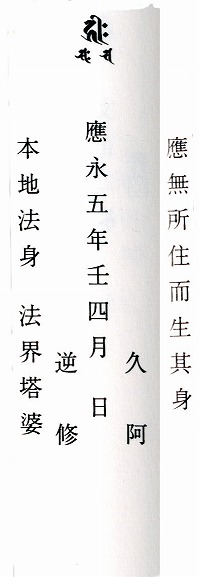 應無所住而生其身
久阿
應永五年壬四月 日
逆修
本地法身 法界塔婆